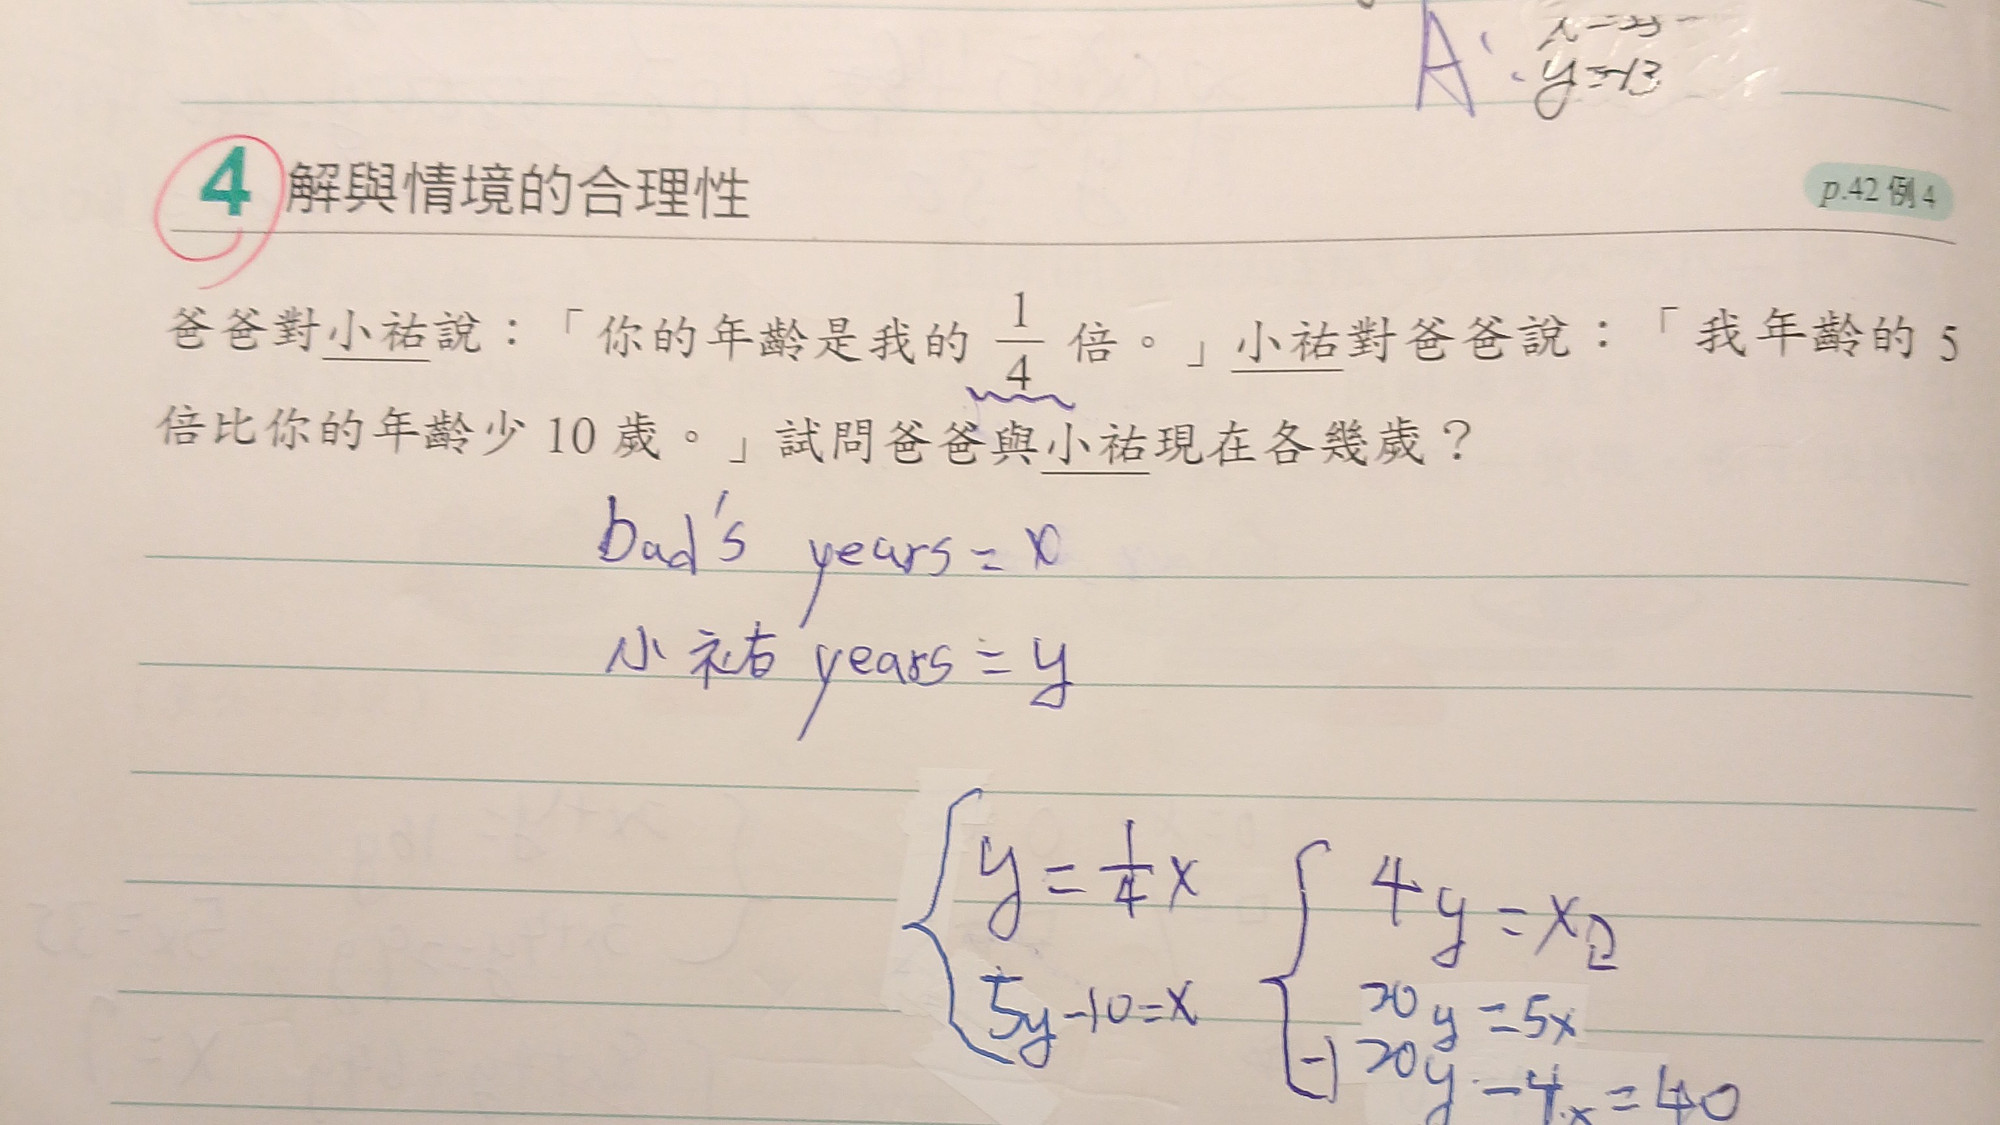 A:
y=-13
4 解與情境的合理性
p.42 例 4
爸爸對小祐說：「你的年齡是我的 1/4 倍。」小祐對爸爸說：「我年齡的 5
倍比你的年齡少 10 歲。」試問爸爸與小祐現在各幾歲？
Dad's years = x
小祐 years = y
y = 1/4 x
5y-10=x
4y=x
20y=5x
-) 20y-4x=40